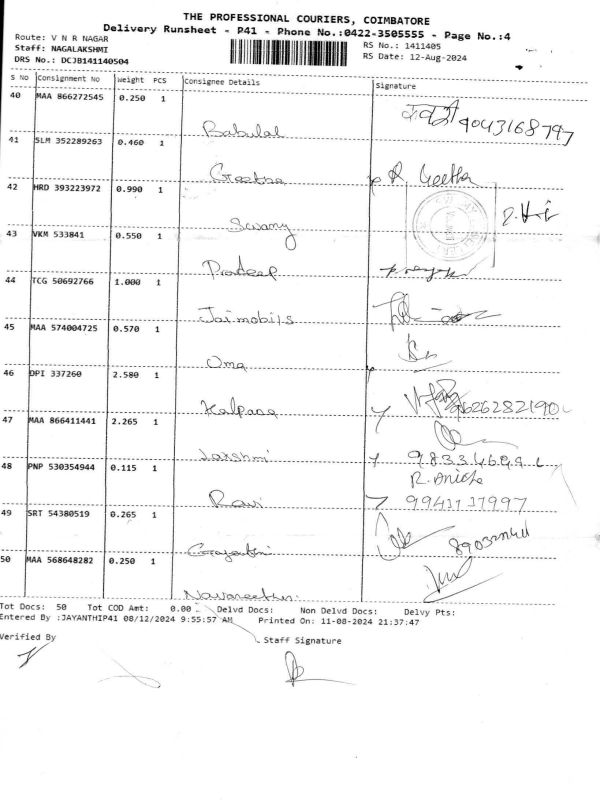 THE PROFESSIONAL COURIERS, COIMBATORE
Delivery Runsheet - P41 - Phone No.:0422-3505555 - Page No.:4
Route: V N R NAGAR
RS No.: 1411405
Staff: NAGALAKSHMI
RS Date: 12-Aug-2024
DRS No.: DCJB141140504
S No Consignment No Weight PCS Consignee Details Signature
40 MAA 866272545 0.250 1
Babulal 9043168797
41 SLM 352289263 0.460 1
Geetha R Geetha
42 HRD 393223972 0.990 1
Swamy
43 VKM 533841 0.550 1
Pradeep
44 TCG 50692766 1.000 1
Jaimobils
45 MAA 574004725 0.570 1
Oma
46 DPI 337260 2.580 1
Kalpana
47 MAA 866411441 2.265 1
Lakshmi
48 PNP 530354944 0.115 1
R. Anitha
Ravi
49 SRT 54380519 0.265 1
Gayatri
50 MAA 568648282 0.250 1
Navaneethan
Tot Docs: 50 Tot COD Amt: 0.00 Delvd Docs: Non Delvd Docs: Delvy Pts:
Entered By :JAYANTHIP41 08/12/2024 9:55:57 AM Printed On: 11-08-2024 21:37:47
Verified By Staff Signature